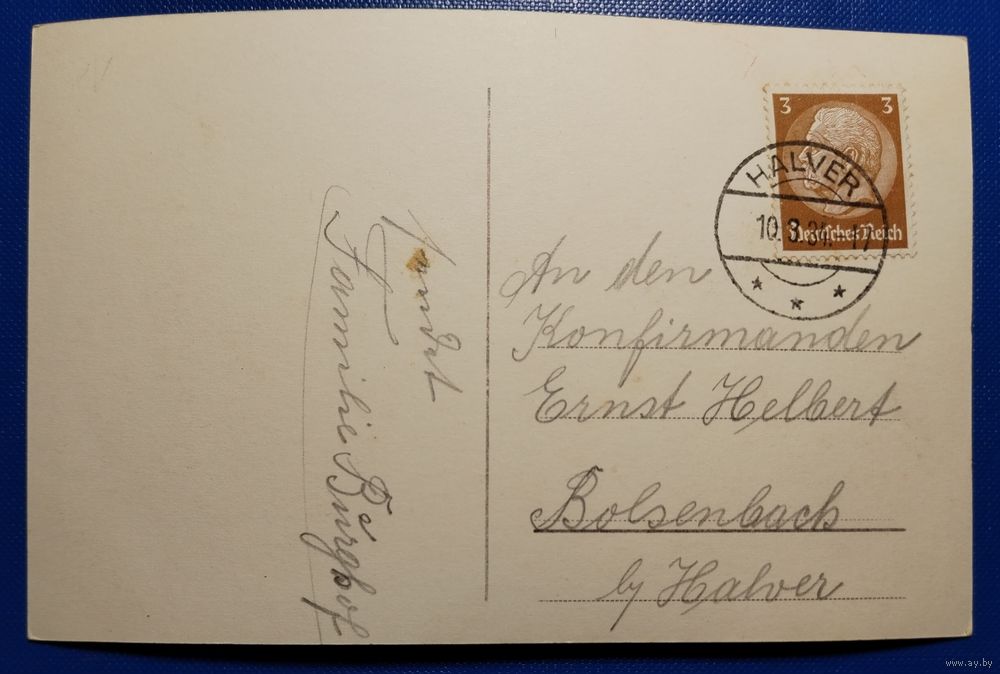 3 3
Deutsches Reich
HALVER
10.3.34. 17
An den
Konfirmanden
Ernst Helbert
Bolsenbach
by Halver
sendet
Familie Burghof
www.ay.by